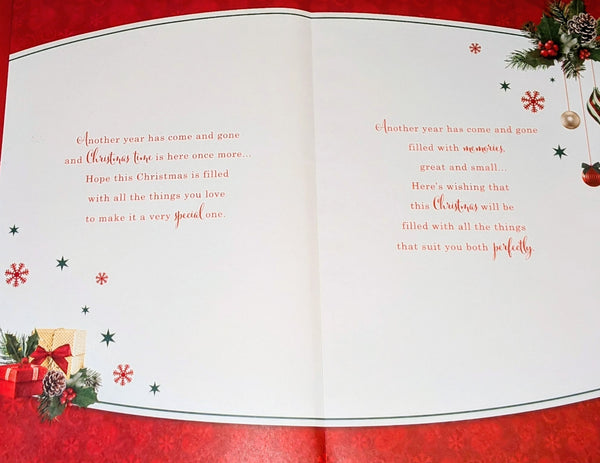 Another year has come and gone
and Christmas time is here once more...
Hope this Christmas is filled
with all the things you love
to make it a very special one.
Another year has come and gone
filled with memories,
great and small...
Here's wishing that
this Christmas will be
filled with all the things
that suit you both perfectly.